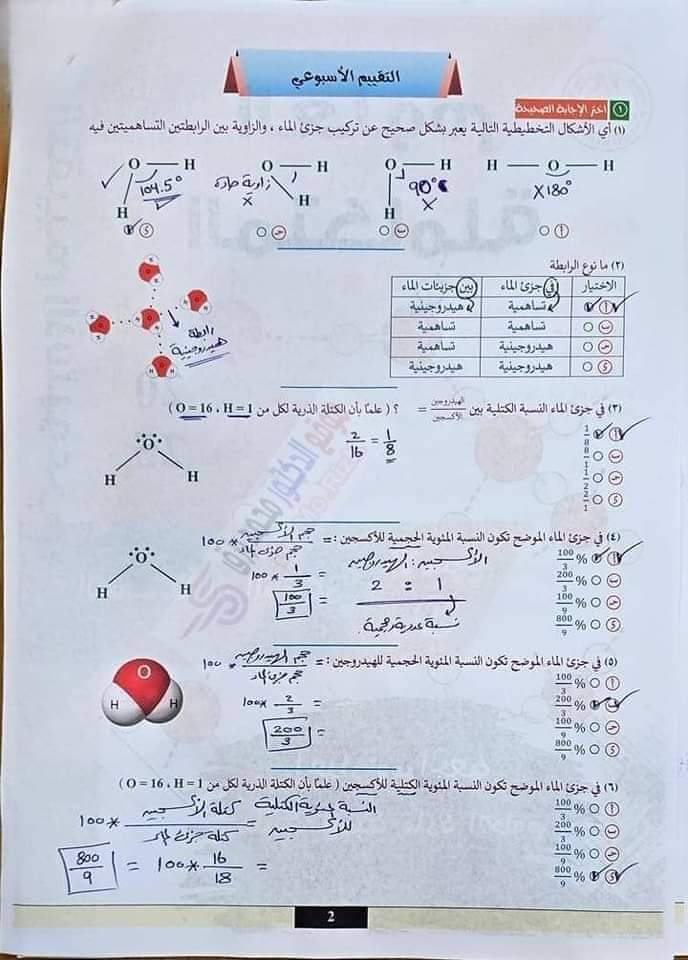 التقييم الأسبوعي
١ اختر الإجابة الصحيحة
(١) أي الأشكال التخطيطية التالية يعبر بشكل صحيح عن تركيب جزئ الماء ، والزاوية بين الرابطتين التساهميتين فيه
H — O — H
X 180°
أ
O — H
H
90°
X
ب
O — H
H
زاوية حادة
X
ج
O — H
H
104.5°
د
(٢) ما نوع الرابطة
الاختيار في جزئ الماء بين جزيئات الماء
أ تساهمية هيدروجينية
ب تساهمية تساهمية
ج هيدروجينية تساهمية
د هيدروجينية هيدروجينية
رابطة
هيدروجينية
(٣) في جزئ الماء النسبة الكتلية بين الهيدروجين/الأكسجين = ؟ ( علمًا بأن الكتلة الذرية لكل من O = 16 ، H = 1 )
أ 1/8
ب 8/1
ج 1/2
د 2/1
2/16 = 1/8
O
H H
(٤) في جزئ الماء الموضح تكون النسبة المئوية الحجمية للأكسجين : = حجم الأكسجين/حجم جزئ الماء * 100
أ % 100/3
ب % 200/3
ج % 100/9
د % 800/9
الأكسجين : الهيدروجين
2 : 1
نسبة عددية وحجمية
= 1/3 * 100
= 100/3
O
H H
(٥) في جزئ الماء الموضح تكون النسبة المئوية الحجمية للهيدروجين : = حجم الهيدروجين/حجم جزئ الماء * 100
أ % 100/3
ب % 200/3
ج % 100/9
د % 800/9
= 2/3 * 100
= 200/3
O
H H
(٦) في جزئ الماء الموضح تكون النسبة المئوية الكتلية للأكسجين ( علمًا بأن الكتلة الذرية لكل من O = 16 ، H = 1 )
أ % 100/3
ب % 200/3
ج % 100/9
د % 800/9
النسبة المئوية الكتلية
للأكسجين = كتلة الأكسجين/كتلة جزئ الماء * 100
= 16/18 * 100 = 800/9
2